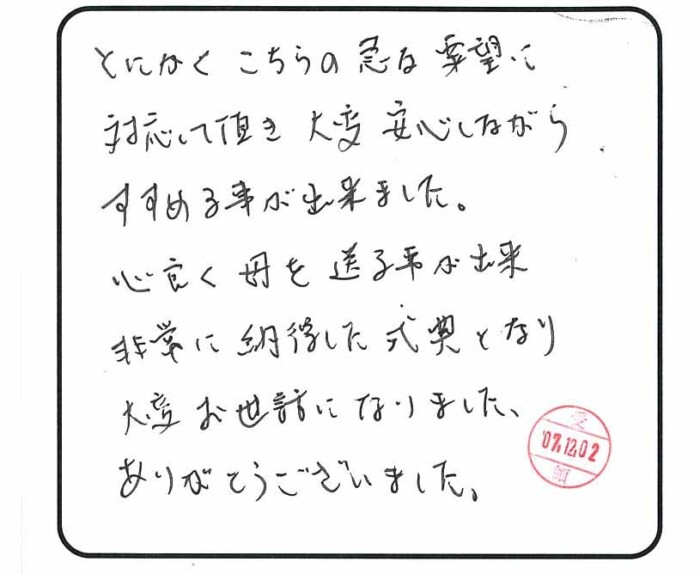 とにかく こちらの 急な 要望に
対応して頂き 大変 安心しながら
すすめる事が出来ました。
心良く 母を 送る事が出来
非常に 納得した 式典となり
大変 お世話になりました、
ありがとうございました。
受
'07.12.02
領